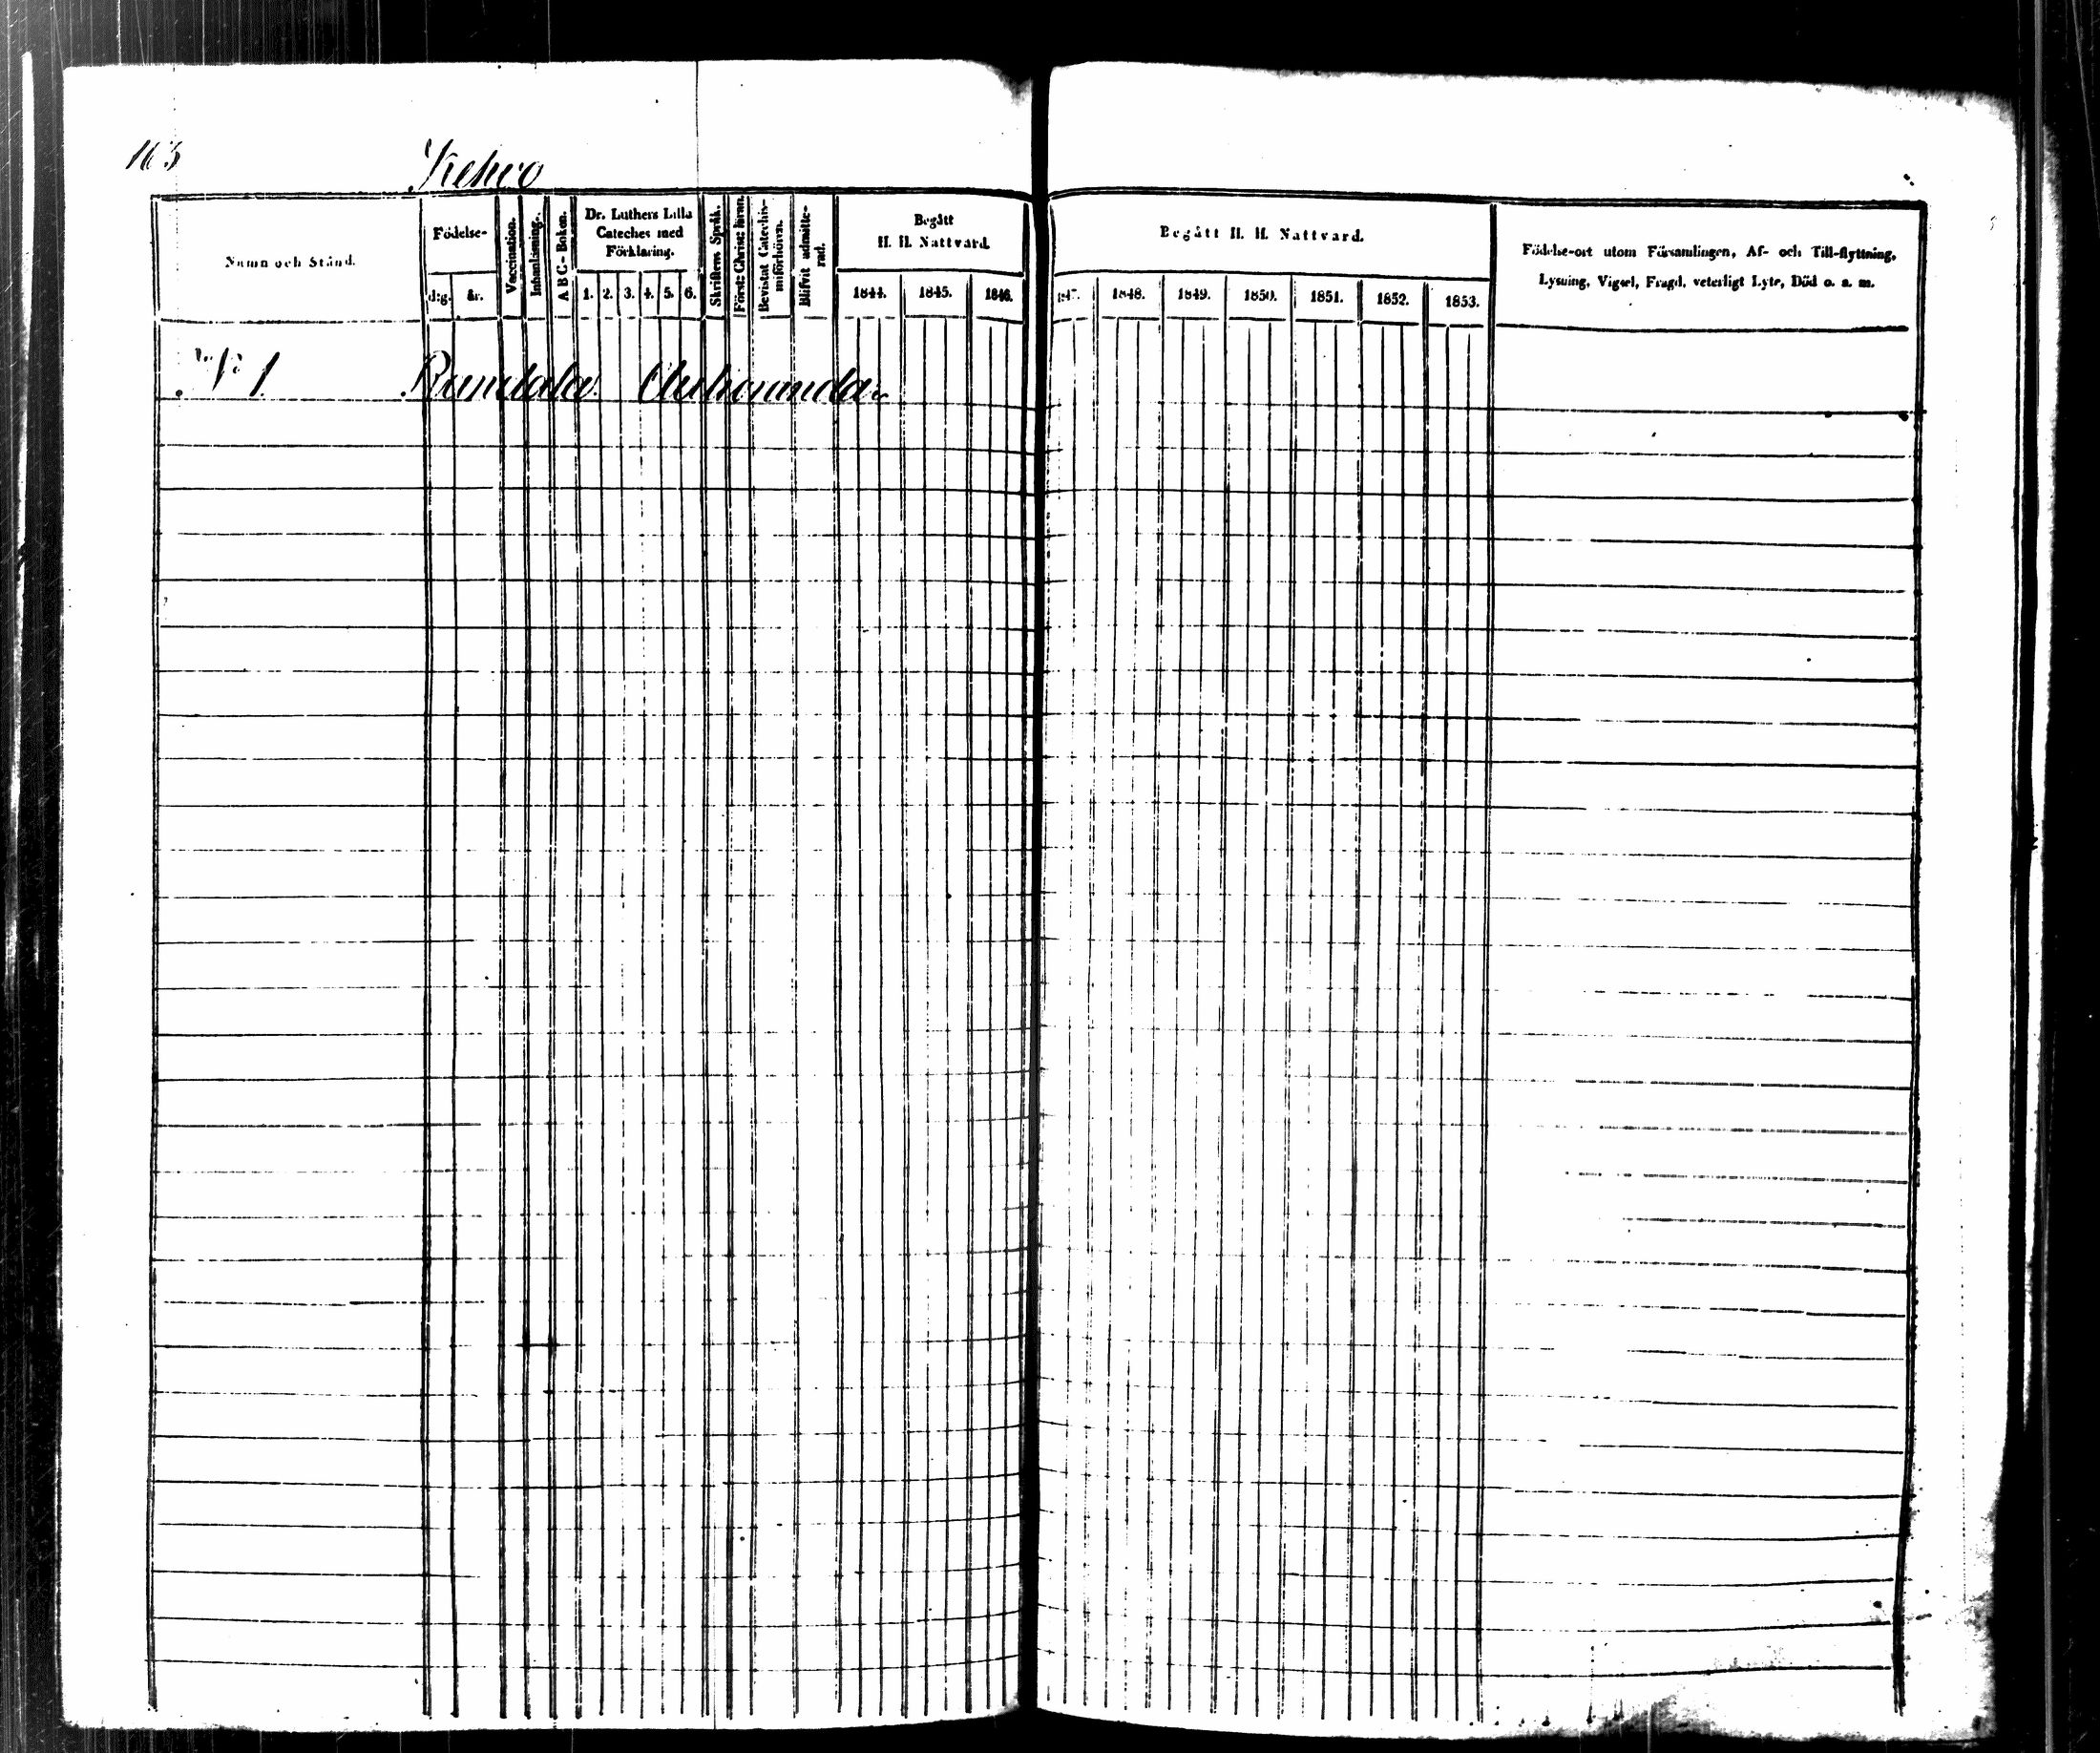 163
Kehro
Namn och Stånd.
Födelse-
dag.
år.
Vaccination.
Innanläsning.
A B C-Boken.
Dr. Luthers Lilla
Cateches med
Förklaring.
1. 2. 3. 4. 5. 6.
Skriftens Språk.
Först: Christ: häran.
Bevistat Catechis-
miförhören.
Blifvit admitte-
rad.
Begått
H. H. Nattvard.
1844. 1845. 1846.
Begått H. H. Nattvard.
1847. 1848. 1849. 1850. 1851. 1852. 1853.
Födelse-ort utom Församlingen, Af- och Till-flyttning,
Lysning, Vigsel, Frägd, veterligt Lyte, Död o. s. m.
No 1. Randala